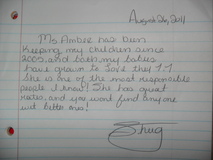 August 26, 2011
Ms. Ambre has been
keeping my children since
2005, and both my babies
have grown to love they T.T.
She is one of the most responsible
people I know! She has great
rates, and you wont find anyone
wit better ones!